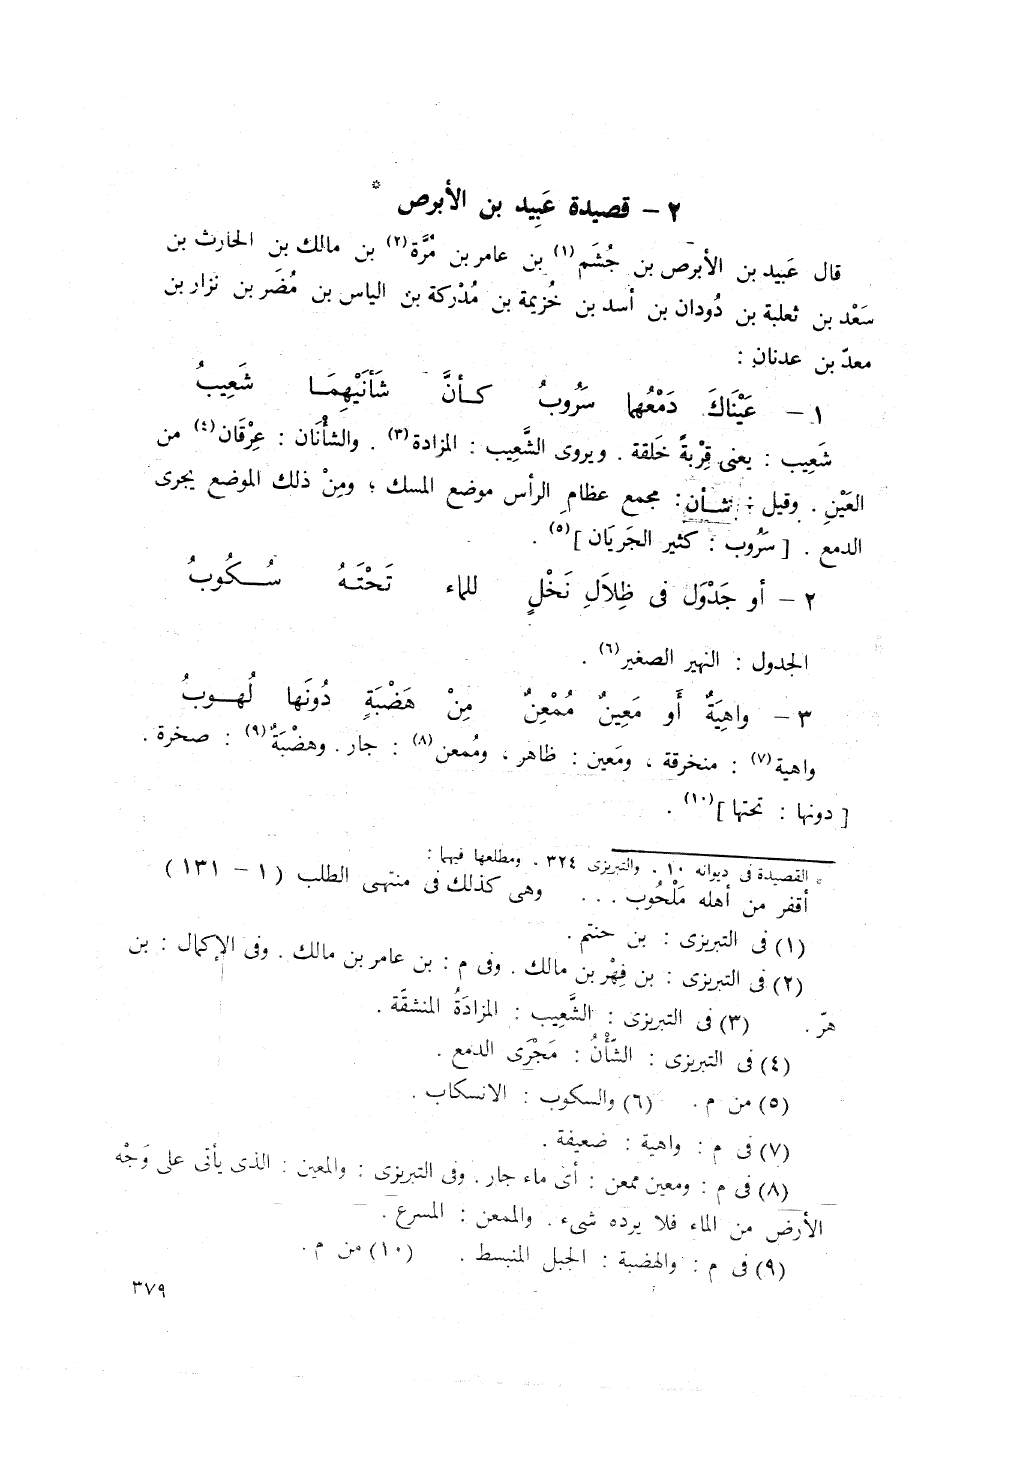 ٢ – قصيدة عَبِيد بن الأبرص *
قال عَبيد بن الأبرص بن جُشَم(١) بن عامر بن مُرَّة(٢) بن مالك بن الحارث بن
سَعْد بن ثعلبة بن دُودان بن أسد بن خُزيمة بن مُدْركة بن الياس بن مُضَر بن نزار بن
معدّ بن عدنان :
١ – عَيْنَاكَ دَمْعُهما سَرُوبُ كــأنَّ شَأنَيْهِمَــا شَعِيبُ
شَعِيب : يعنى قِرْبةً خَلقة . ويروى الشَّعِيب : المزادة(٣) . والشأْنَان : عِرْقَان(٤) من
العَيْنِ . وقيل : شــأن : مجمع عظامِ الرأس موضع المسك ؛ ومِنْ ذلك الموضع يجرى
الدمع . [ سَرُوب : كثير الجَرَيَان ](٥) .
٢ – أو جَدْوَل فى ظِلاَلِ نَخْلٍ للماء تَحْتَــهُ سُــكُوبُ
الجدول : النهير الصغير(٦) .
٣ – واهِيَةٌ أَو مَعِينٌ مُمْعِنٌ مِنْ هَضْبَةٍ دُونَها لُهــوبُ
واهية(٧) : منخرقة ، ومَعين : ظاهر ، ومُمعن(٨) : جار . وهضْبَةٌ(٩) : صخرة .
[ دونها : تحتها ](١٠) .
* القصيدة فى ديوانه ١٠ . والتبريزى ٣٢٤ . ومطلعها فيهما :
أقفر من أهله مَلْحُوب . . . وهى كذلك فى منتهى الطلب ( ١ – ١٣١ )
(١) فى التبريزى : بن حنتم .
(٢) فى التبريزى : بن فِهْر بن مالك . وفى م : بن عامر بن مالك . وفى الإكمال : بن
هرّ . (٣) فى التبريزى : الشَّعِيب : المزادَةُ المنشقَّة .
(٤) فى التبريزى : الشَّأْنُ : مَجْرَى الدمع .
(٥) من م . (٦) والسكوب : الانسكاب .
(٧) فى م : واهية : ضعيفة .
(٨) فى م : ومعين ممعن : أى ماء جار . وفى التبريزى : والمعين : الذى يأتى على وَجْه
الأرض من الماء فلا يرده شىء . والممعن : المسرع .
(٩) فى م : والهضبة : الجبل المنبسط . (١٠) من م .
٣٧٩